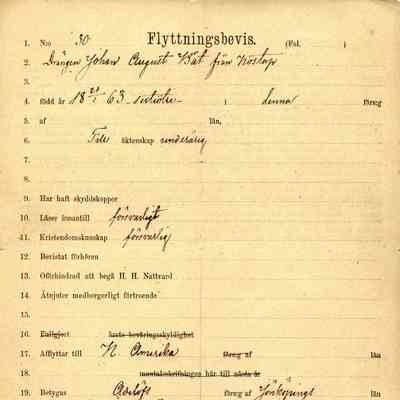 Flyttningsbevis. (Fol. )
1. N:o 30
2. Drängen Johan August Båt från Kostorp
3.
4. född år 18 20/1 63 i denna förs:g
5. af län,
6. äktenskap
7.
8.
9. Har haft skyddskoppor
10. Läser innantill försvarligt
11. Kristendomskunskap försvarlig
12. Bevistat förhören
13. Oförhindrad att begå H. H. Nattvard
14. Åtnjuter medborgerligt förtroende
15.
16. Enligect årets bevärningsskyldighet
17. Afflyttar till N. Amerika förs:g af län
18. mantalsskrifningen här till nästa år
19. Betygas förs:g af Jönköpings län